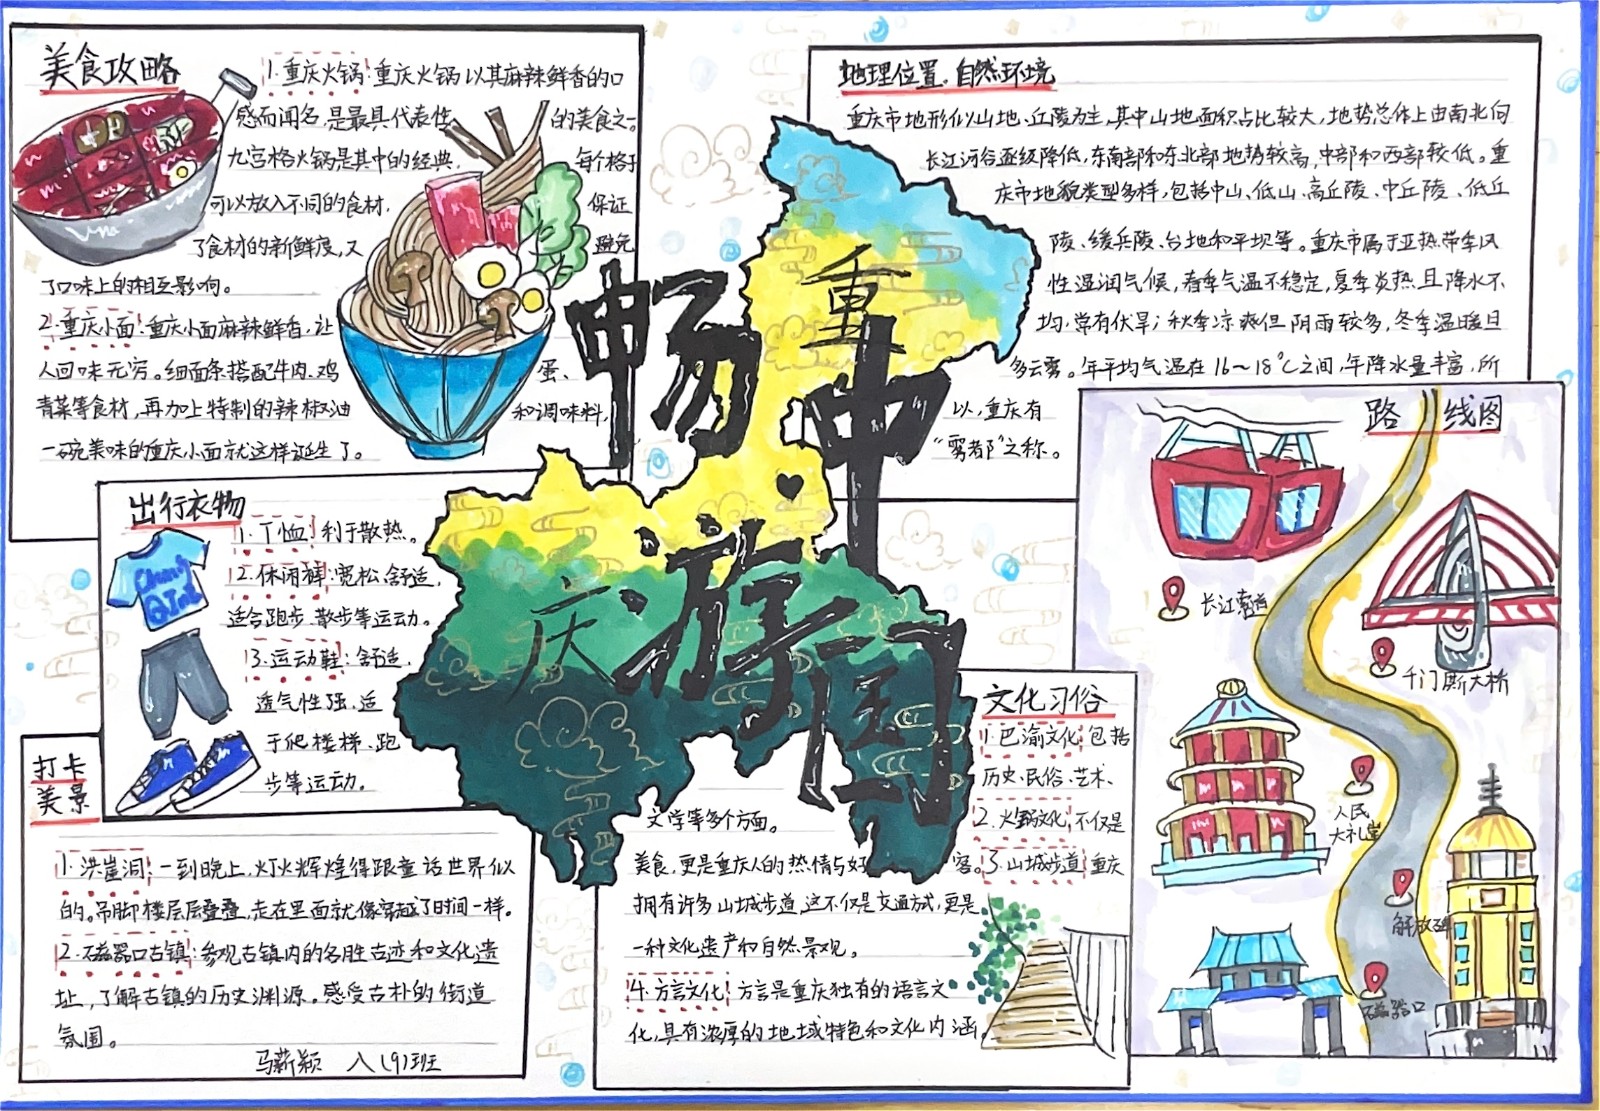 美食攻略
1.重庆火锅:重庆火锅以其麻辣鲜香的口
感而闻名,是最具代表性的美食之一。
九宫格火锅是其中的经典,每个格子
可以放入不同的食材,保证
了食材的新鲜度,又避免
了口味上的相互影响。
2.重庆小面:重庆小面麻辣鲜香,让
人回味无穷。细面条搭配牛肉、鸡蛋、
青菜等食材,再加上特制的辣椒油和调味料,
一碗美味的重庆小面就这样诞生了。
出行衣物
1.T恤:利于散热。
2.休闲裤:宽松,舒适,
适合跑步、散步等运动。
3.运动鞋:舒适,
透气性强,适
于爬楼梯、跑
步等运动。
Chong
QIng
打卡
美景
1.洪崖洞:一到晚上,灯火辉煌得跟童话世界似
的。吊脚楼层层叠叠,走在里面就像穿越了时间一样。
2.磁器口古镇:参观古镇内的名胜古迹和文化遗
址,了解古镇的历史渊源。感受古朴的街道
氛围。
马薪颖 八(9)班
畅游中国
重庆
地理位置、自然环境
重庆市地形以山地、丘陵为主,其中山地面积占比较大,地势总体上由南北向
长江河谷逐级降低,东南部和东北部地势较高,中部和西部较低。重
庆市地貌类型多样,包括中山、低山、高丘陵、中丘陵、低丘
陵、缓丘陵、台地和平坝等。重庆市属于亚热带季风
性湿润气候,春季气温不稳定,夏季炎热且降水不
均,常有伏旱;秋季凉爽但阴雨较多,冬季温暖且
多云雾。年平均气温在16~18℃之间,年降水量丰富,所
以,重庆有
“雾都”之称。
文化习俗
1.巴渝文化:包括
历史、民俗、艺术、
文学等多个方面。
2.火锅文化,不仅是
美食,更是重庆人的热情与好客。3.山城步道:重庆
拥有许多山城步道,这不仅是交通方式,更是
一种文化遗产和自然景观。
4.方言文化:方言是重庆独有的语言文
化,具有浓厚的地域特色和文化内涵。
路线图
长江索道
千门斯大桥
人民
大礼堂
解放碑
磁器口